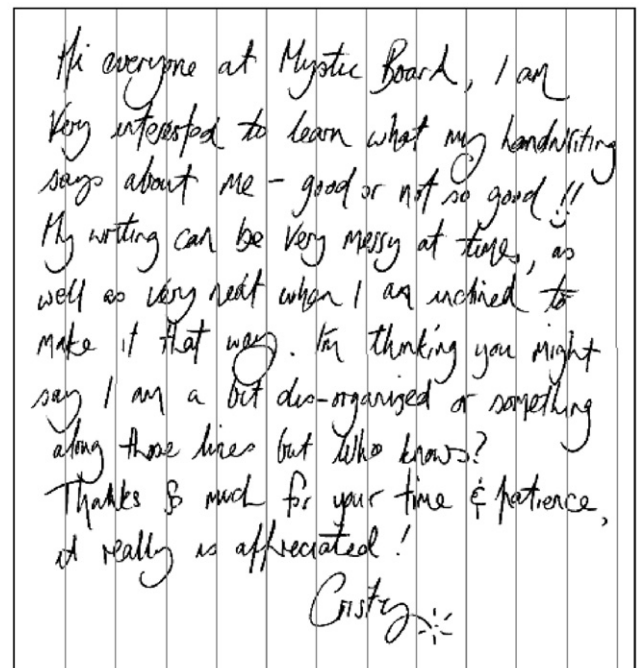 Hi everyone at Mystic Board, I am
Very interested to learn what my handwriting
says about me - good or not so good !!
My writting can be very messy at times, as
well as very neat when I am inclined to
make it that way. I'm thinking you might
say I am a bit dis-organized or something
along those lines but who knows?
Thanks so much for your time & patience,
it really is appreciated !
Cristy